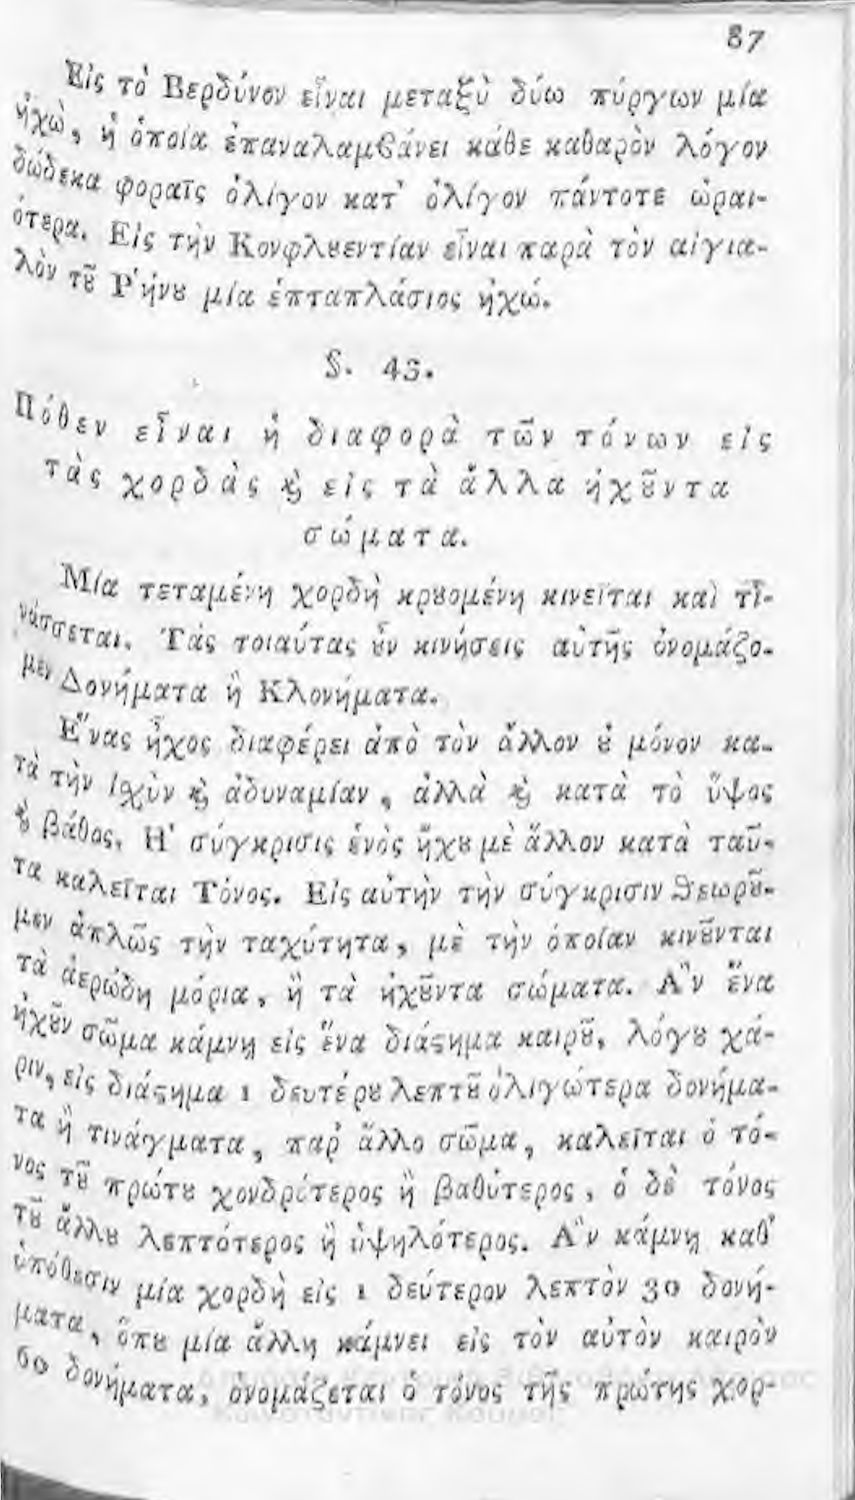 87
Εἰς τὸ Βερδύνον εἶναι μεταξὺ δύω πύργων μία
ἠχὼ, ἡ ὁποία ἐπαναλαμβάνει κάθε καθαρὸν λόγον
δώδεκα φοραῖς ὀλίγον κατ' ὀλίγον πάντοτε ὡραι-
ότερα. Εἰς τὴν Κονφλȣεντίαν εἶναι παρὰ τὸν αἰγια-
λὸν τȣ͂ Ῥήνȣ μία ἑπταπλάσιος ἠχώ.
§. 43.
Πόθεν εἶναι ἡ διαφορὰ τῶν τόνων εἰς
τὰς χορδὰς ϗ εἰς τὰ ἄλλα ἠχȣ͂ντα
σώματα.
Μία τεταμένη χορδὴ κρȣομένη κινεῖται καὶ τι-
νάσσεται. Τάς τοιαύτας ȣ̓͂ν κινήσεις αὐτῆς ὀνομάζο-
μεν Δονήματα ἢ Κλονήματα.
Ἕνας ἦχος διαφέρει ἀπὸ τὸν ἄλλον ȣ̓ μόνον κα-
τὰ τὴν ἰχὺν ϗ ἀδυναμίαν, ἀλλὰ ϗ κατὰ τὸ ὕψος
ϗ βάθος. Ἡ σύγκρισις ἑνὸς ἤχȣ μὲ ἄλλον κατὰ ταῦ-
τα καλεῖται Τόνος. Εἰς αὐτὴν τὴν σύγκρισιν ϑεωρȣ͂-
μεν ἁπλῶς τὴν ταχύτητα, μὲ τὴν ὁποίαν κινȣ͂νται
τὰ ἀερώδη μόρια, ἢ τὰ ἠχȣ͂ντα σώματα. Ἂν ἕνα
ἠχȣ͂ν σῶμα κάμνῃ εἰς ἕνα διάϛημα καιρȣ͂, λόγȣ χά-
ριν, εἰς διάϛημα 1 δευτέρȣ λεπτȣ͂ ὀλιγώτερα δονήμα-
τα ἢ τινάγματα, παρ' ἄλλο σῶμα, καλεῖται ὁ τό-
νος τȣ͂ πρώτȣ χονδρότερος ἢ βαθύτερος, ὁ δὲ τόνος
τȣ͂ ἄλλȣ λεπτότερος ἢ ὑψηλότερος. Ἂν κάμνῃ καθ'
ὑπόθεσιν μία χορδὴ εἰς 1 δεύτερον λεπτὸν 30 δονή-
ματα, ὅπȣ μία ἄλλη κάμνει εἰς τὸν αὐτὸν καιρὸν
60 δονήματα, ὀνομάζεται ὁ τόνος τῆς πρώτης χορ-